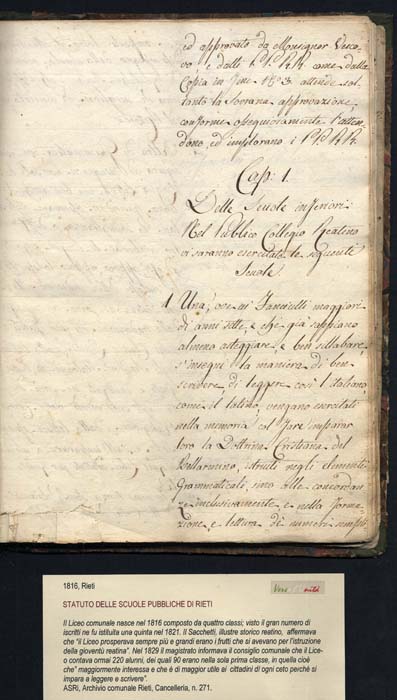 ed approvato da Monsignor Vesco-
vo e dalli P.P. R.R. come dalla
Copia in fine N° 3. attende sol-
tanto la Sovrana approvazione,
conforme ossequiosamente l'atten-
dono, ed implorano i P.P. R.R.
Cap: 1.
Delle Scuole inferiori
Nel Pubblico Collegio Reatino
vi saranno esercitate le seguenti
Scuole
1 Una, ove ai Fanciulli maggiori
di anni sette, e che già sappiano
almeno asteggiare, e ben sillabare,
s'insegni la maniera di ben
scrivere, di legger così l'italiano,
come il latino, vengano esercitati
nella memoria col fare imparar
loro la Dottrina Cristiana del
Bellarmino, istruiti negli elementi
Grammaticali, sino alle concordan-
ze inclusivamente, e nella forma-
zione, e lettura de' numeri simpli
1816, Rieti
STATUTO DELLE SCUOLE PUBBLICHE DI RIETI
Il Liceo comunale nasce nel 1816 composto da quattro classi; visto il gran numero di
iscritti ne fu istituita una quinta nel 1821. Il Sacchetti, illustre storico reatino, affermava
che "il Liceo prosperava sempre più e grandi erano i frutti che si avevano per l'istruzione
della gioventù reatina". Nel 1829 il magistrato informava il consiglio comunale che il Lice-
o contava ormai 220 alunni, dei quali 90 erano nella sola prima classe, in quella cioè
che" maggiormente interessa e che è di molto utile ai cittadini di ogni ceto perché si
impara a leggere e scrivere".
ASRi, Archivio comunale Rieti, Cancelleria, n. 271.